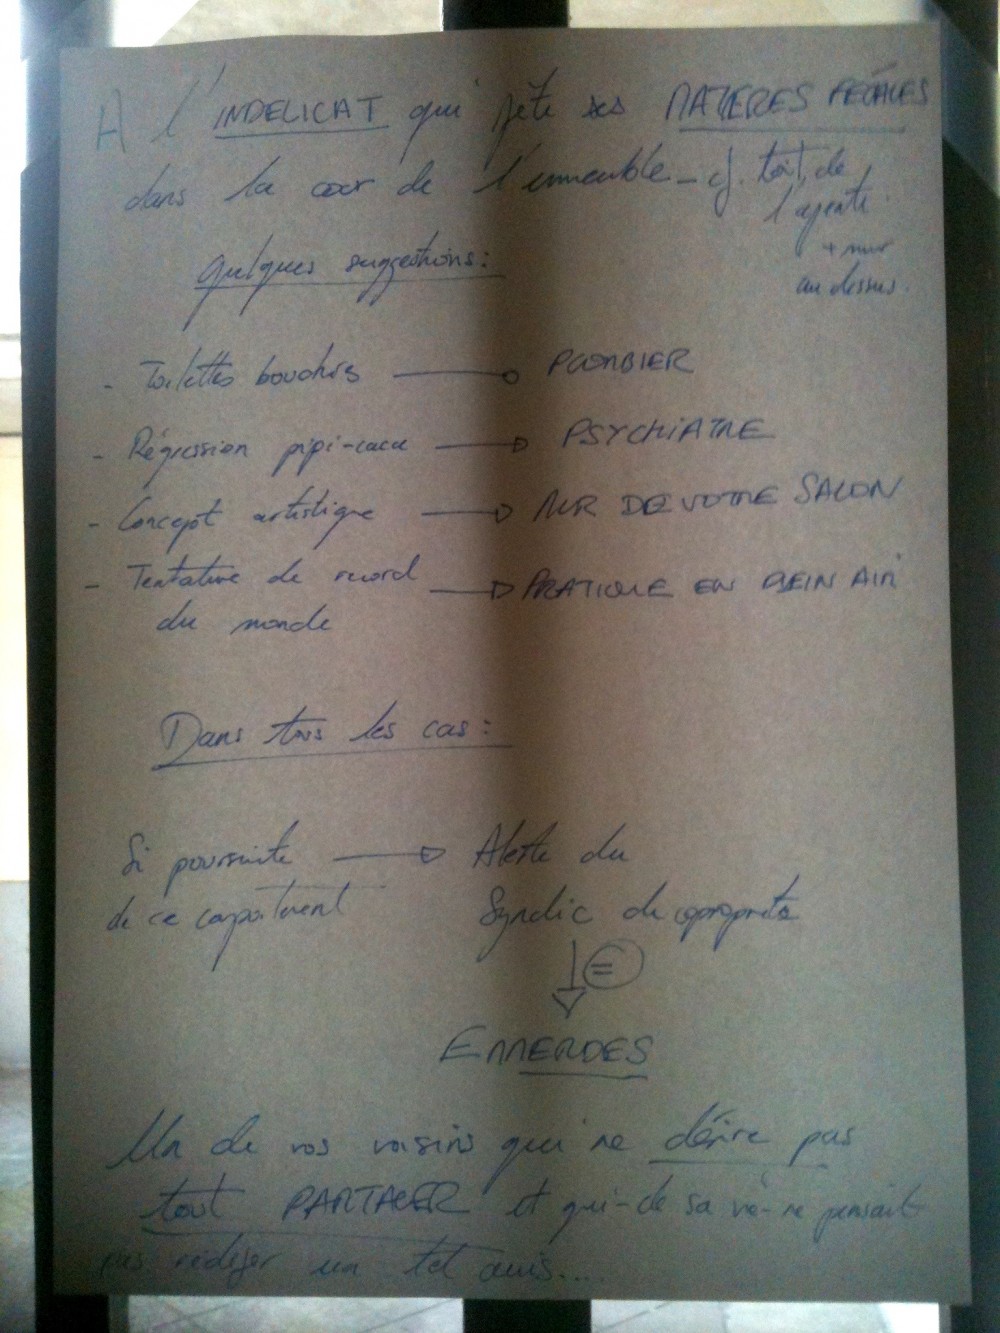 A l'INDELICAT qui jète ses MATIERES FECALES
dans la cour de l'immeuble - cf. toit de
l'agente.
+ mur
au dessus.
Quelques suggestions :
- Toilettes bouchés → PLOMBIER
- Régression pipi-caca → PSYCHIATRE
- Concept artistique → MUR DE VOTRE SALON
- Tentative de record → PRATIQUE EN PLEIN AIR
du monde
Dans tous les cas :
Si poursuite → Alerte du
de ce comportement Syndic de copropriété
↓ =
EMMERDES
Un de vos voisins qui ne désire pas
tout PARTAGER et qui - de sa vie - ne pensait
pas rédiger un tel avis....